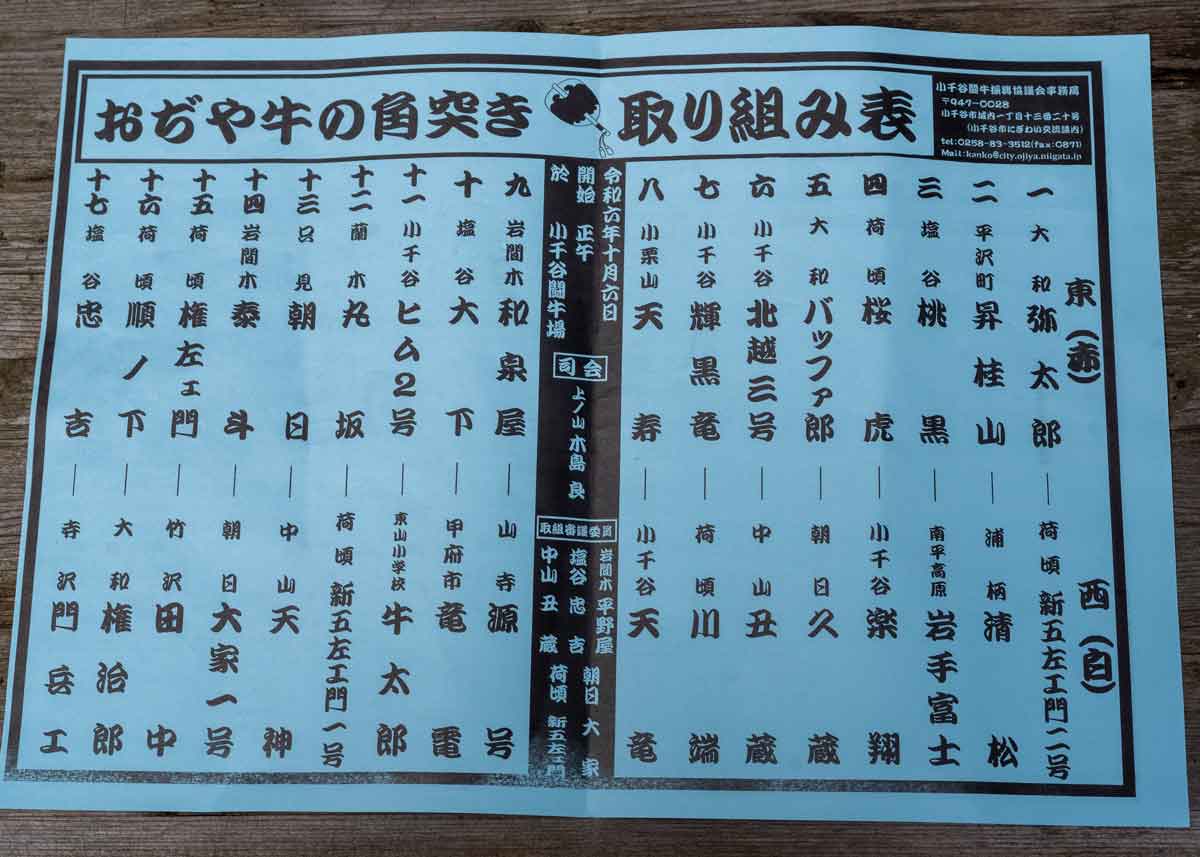 おぢや牛の角突き 取り組み表
小千谷闘牛振興協議会事務局
〒947-0028
小千谷市城内一丁目十三番二十号
(小千谷市にぎわい交流課内)
tel:0258-83-3512(fax:0871)
Mail:kanko@city.ojiya.niigata.jp
東(赤)
西(白)
一 大和 弥太郎 — 荷頃 新五左エ門二号
二 平沢町 昇桂山 — 浦柄 清松
三 塩谷 桃黒 — 南平高原 岩手富士
四 荷頃 桜虎 — 小千谷 楽翔
五 大和 バッファ郎 — 朝日 久蔵
六 小千谷 北越三号 — 中山 丑蔵
七 小千谷 輝黒竜 — 荷頃 川端
八 小栗山 天寿 — 小千谷 天竜
令和六年十月六日
開始 正午
於 小千谷闘牛場
司会
上ノ山 木島良
取組審議委員
岩間木 平野屋
塩谷 忠吉
中山 丑蔵
朝日 大家
荷頃 新五左エ門
九 岩間木 和泉屋 — 山寺 源号
十 塩谷 大下 — 甲府市 竜電
十一 小千谷 ヒム2号 — 東山小学校 牛太郎
十二 蘭木 丸坂 — 荷頃 新五左エ門一号
十三 只見 朝日 — 中山 天神
十四 岩間木 泰斗 — 朝日 大家一号
十五 荷頃 権左エ門 — 竹沢 田中
十六 荷頃 順ノ下 — 大和 権治郎
十七 塩谷 忠吉 — 寺沢 門兵エ